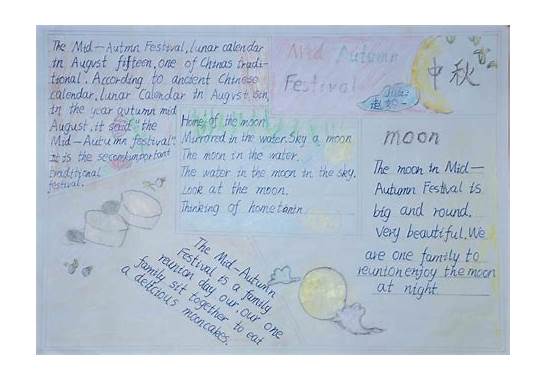 The Mid-Autmn Festival, lunar calendar
in August fifteen, one of Chinas tradi-
tional. According to ancient Chinese
calendar, lunar Calendar in August, 
in the year autumn mid
August, it said "the
Mid-Autumn festival".
it is the second important
traditional
festival.
Mid Autumn
Festival
中秋
Home of the moon
Mirrored in the water. Sky a moon
The moon in the water.
The water in the moon in the sky.
Look at the moon.
Thinking of
moon
The moon in Mid-
Autumn Festival is
big and round.
Very beautiful. We
are one family to
reunion enjoy the moon
at night
The Mid-Autumn
Festival is a family
reunion day our. our one
family sit together to eat
a delicious mooncakes.